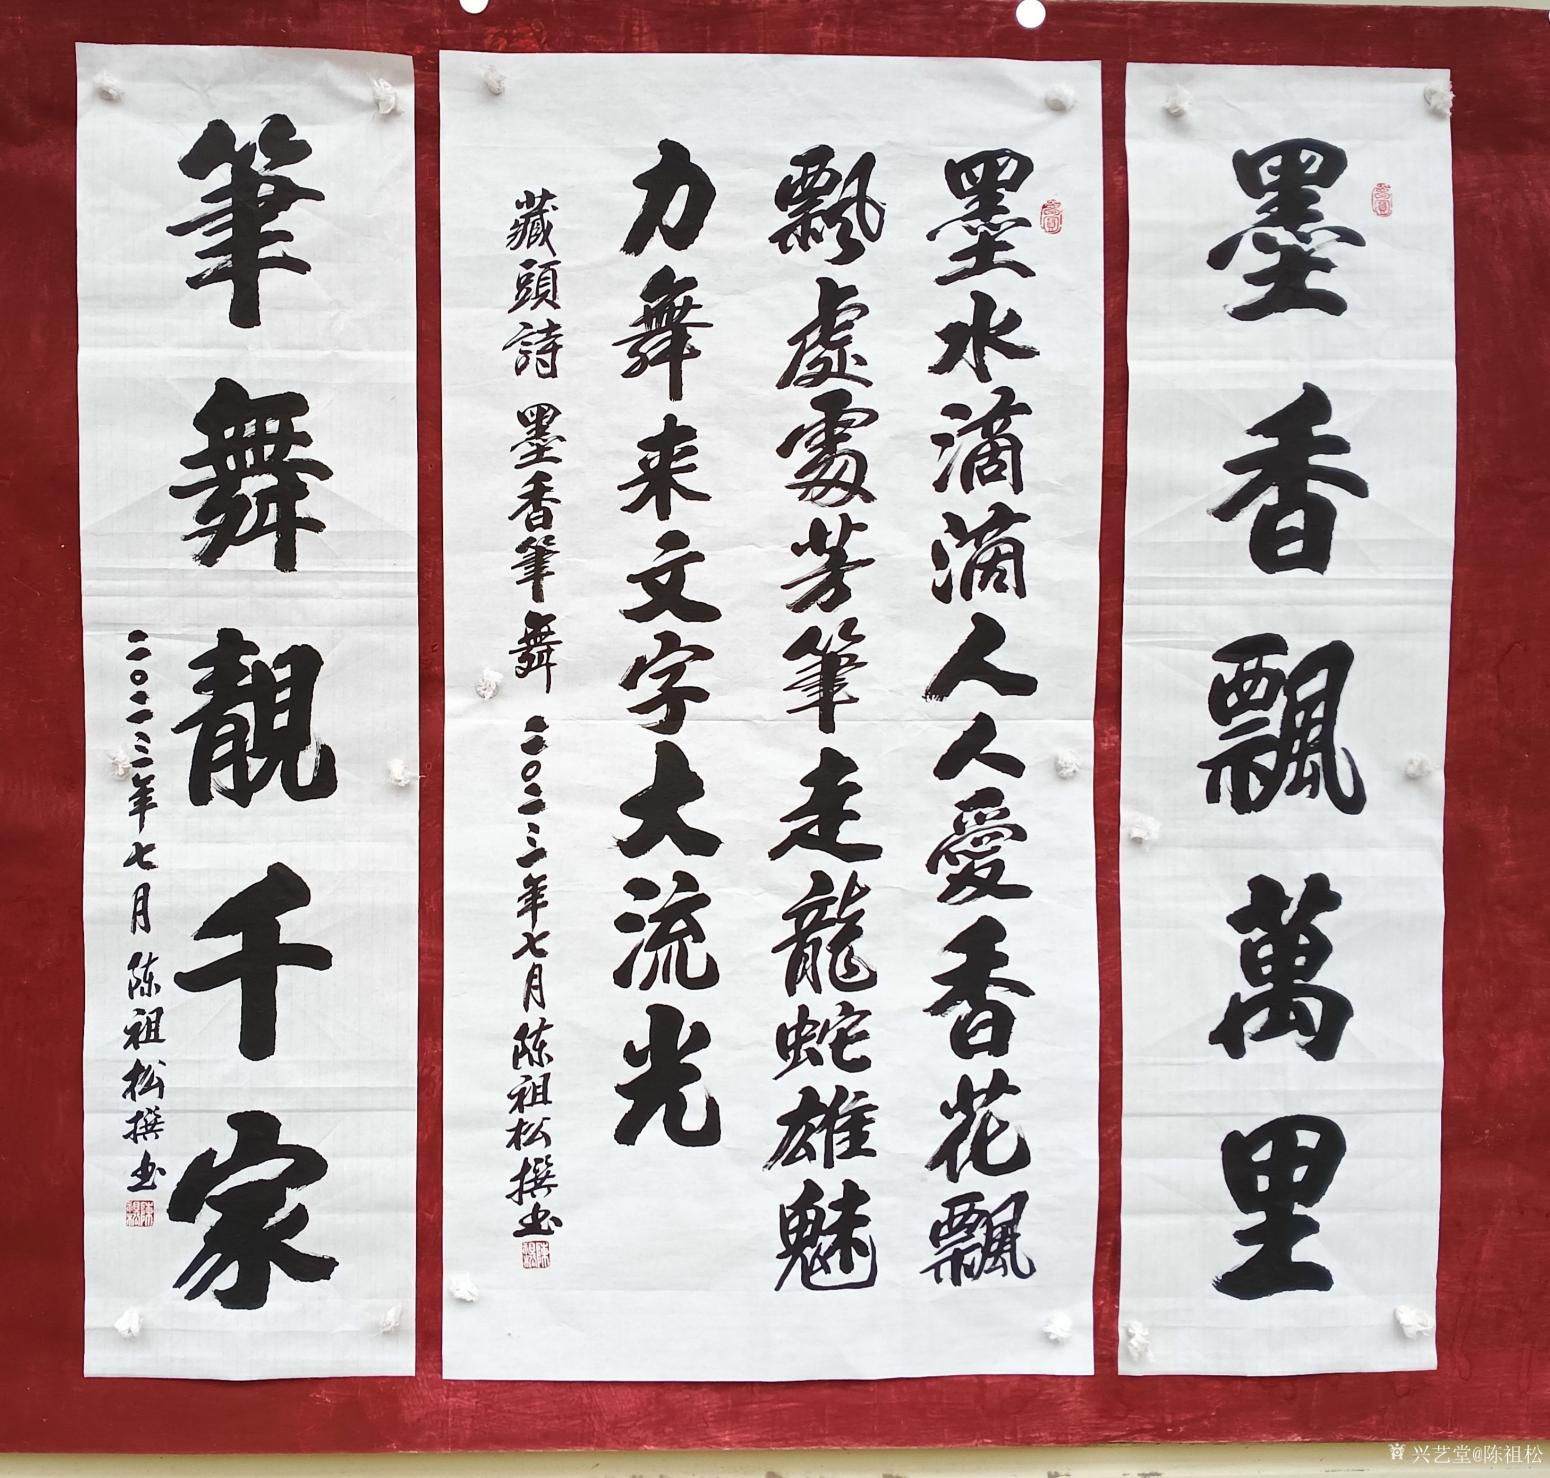 墨香飄萬里
墨水滴滴人人愛香花飄
飄處處芳筆走龍蛇雄魅
力舞来文字大流光
藏頭詩 墨香筆舞 二〇二三年七月陈祖松撰书
筆舞靚千家
二〇二三年七月 陈祖松撰书
兴艺堂@陈祖松